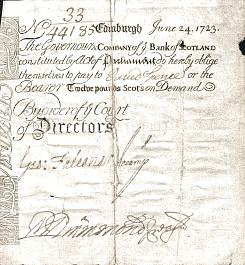 33
No 44185 Edinburgh June 24, 1723.
The Governour & COMPANY of ye BANK of SCOTLAND
constituted by Act of Parliament do hereby oblige
themselves to pay to David Spence or the
Bearer Twelve pounds Scots on Demand
By order of ye Court
of Directors
Drummond